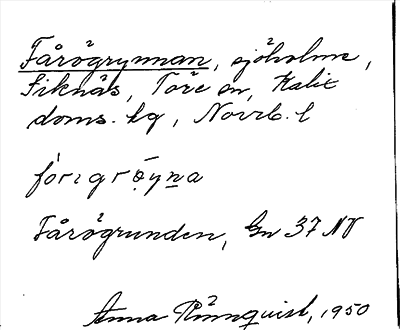 Fårögrynnan, sjöholme,
Siknäs, Töre sn, Kalix
doms. lg, Norrb. l
Fårögrunden, Gn 37 NV
Anna Rönnquist, 1950